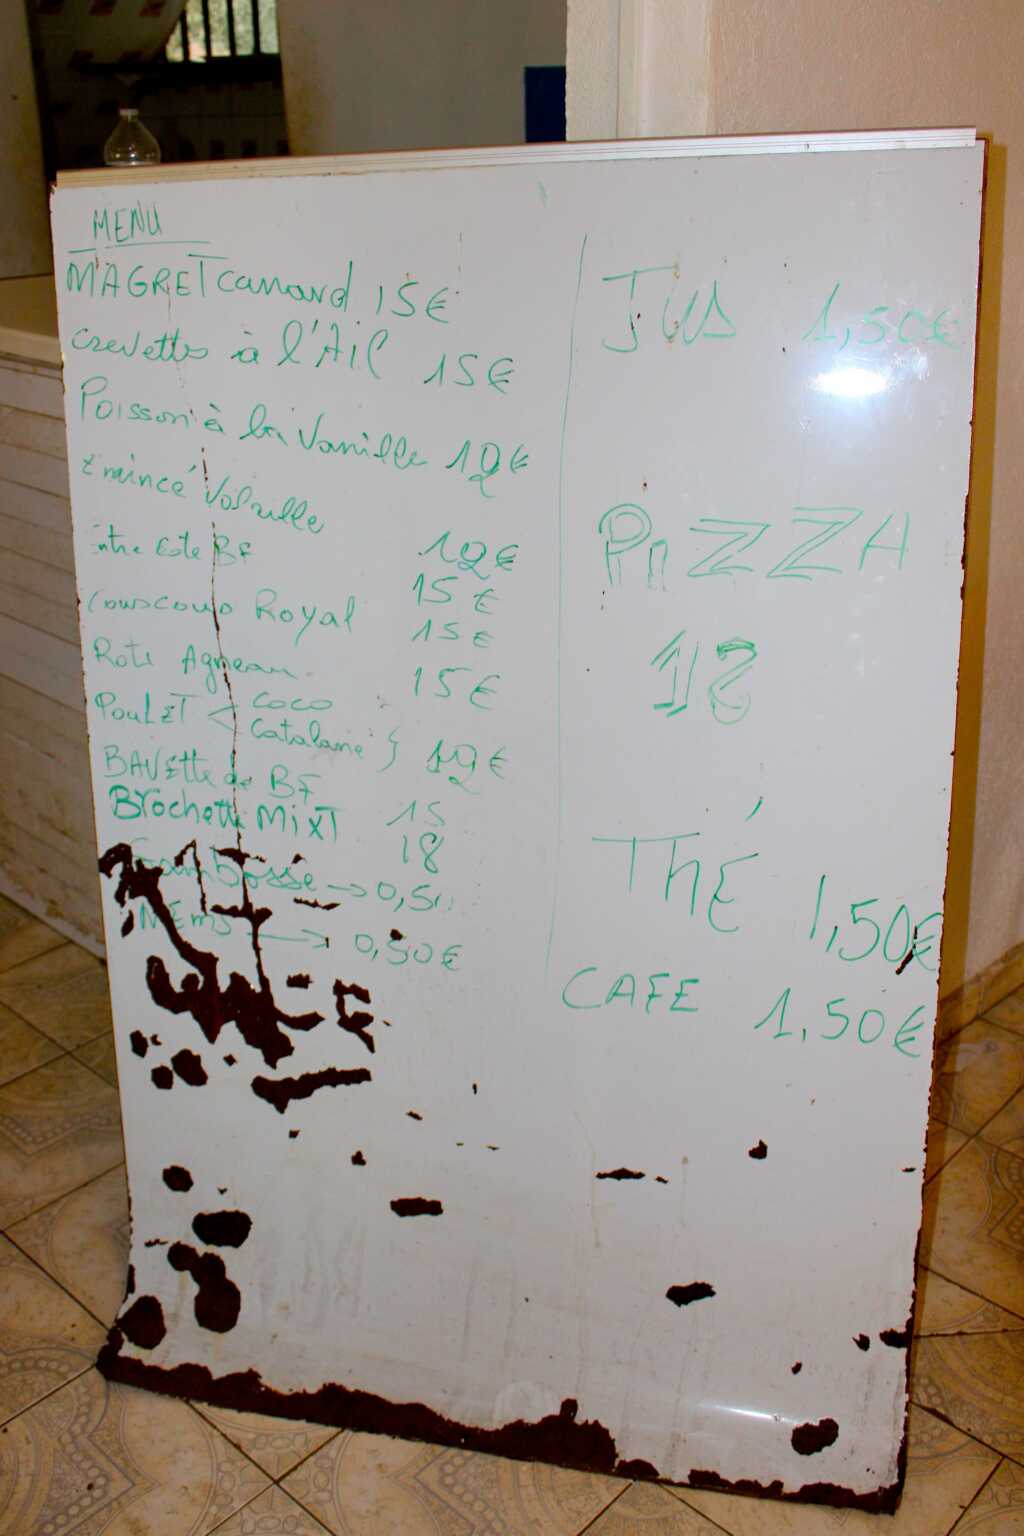 MENU
MAGRET canard 15€
crevettes à l'Ail 15€
Poisson à la Vanille 12€
Emincé Volaille 12€
Entre Cote BF 15€
Couscous Royal 15€
Roti Agneau 15€
POULET < COCO
Catalane } 12€
BAVette de BF 15
Brochette MiXT 18
Sambossé → 0,50
NEMS → 0,50€
JUS 1,50€
PIZZA
12
THÉ 1,50€
CAFE 1,50€